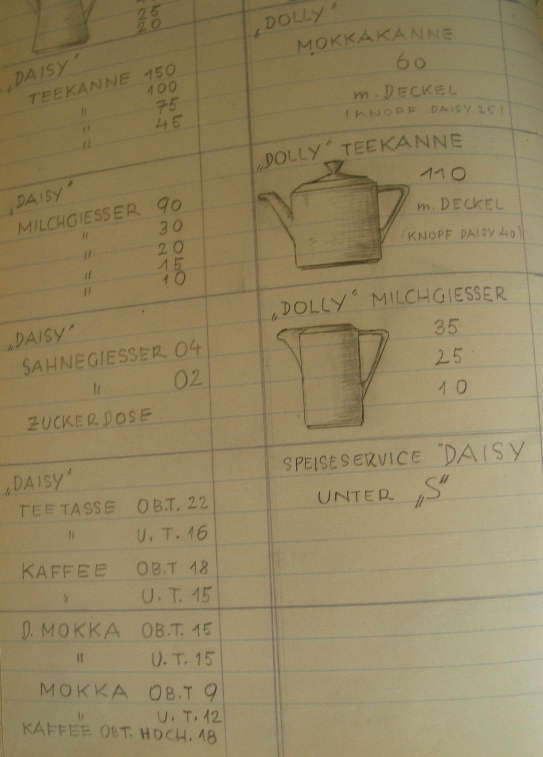 25
20
„DAISY"
TEEKANNE 150
" 100
" 75
" 45
"
„DAISY"
MILCHGIESSER 90
" 30
" 20
" 15
" 10
„DAISY"
SAHNEGIESSER 04
" 02
ZUCKERDOSE
„DAISY"
TEETASSE OB.T. 22
" U. T. 16
KAFFEE OB.T 18
" U. T. 15
D. MOKKA OB.T. 15
" U.T. 15
MOKKA OB.T 9
" U. T. 12
KAFFEE OBT. HOCH. 18
„DOLLY"
MOKKAKANNE
60
m. DECKEL
(KNOPF DAISY 25)
„DOLLY" TEEKANNE
110
m. DECKEL
(KNOPF DAISY 40)
„DOLLY" MILCHGIESSER
35
25
10
SPEISESERVICE "DAISY
UNTER „S"